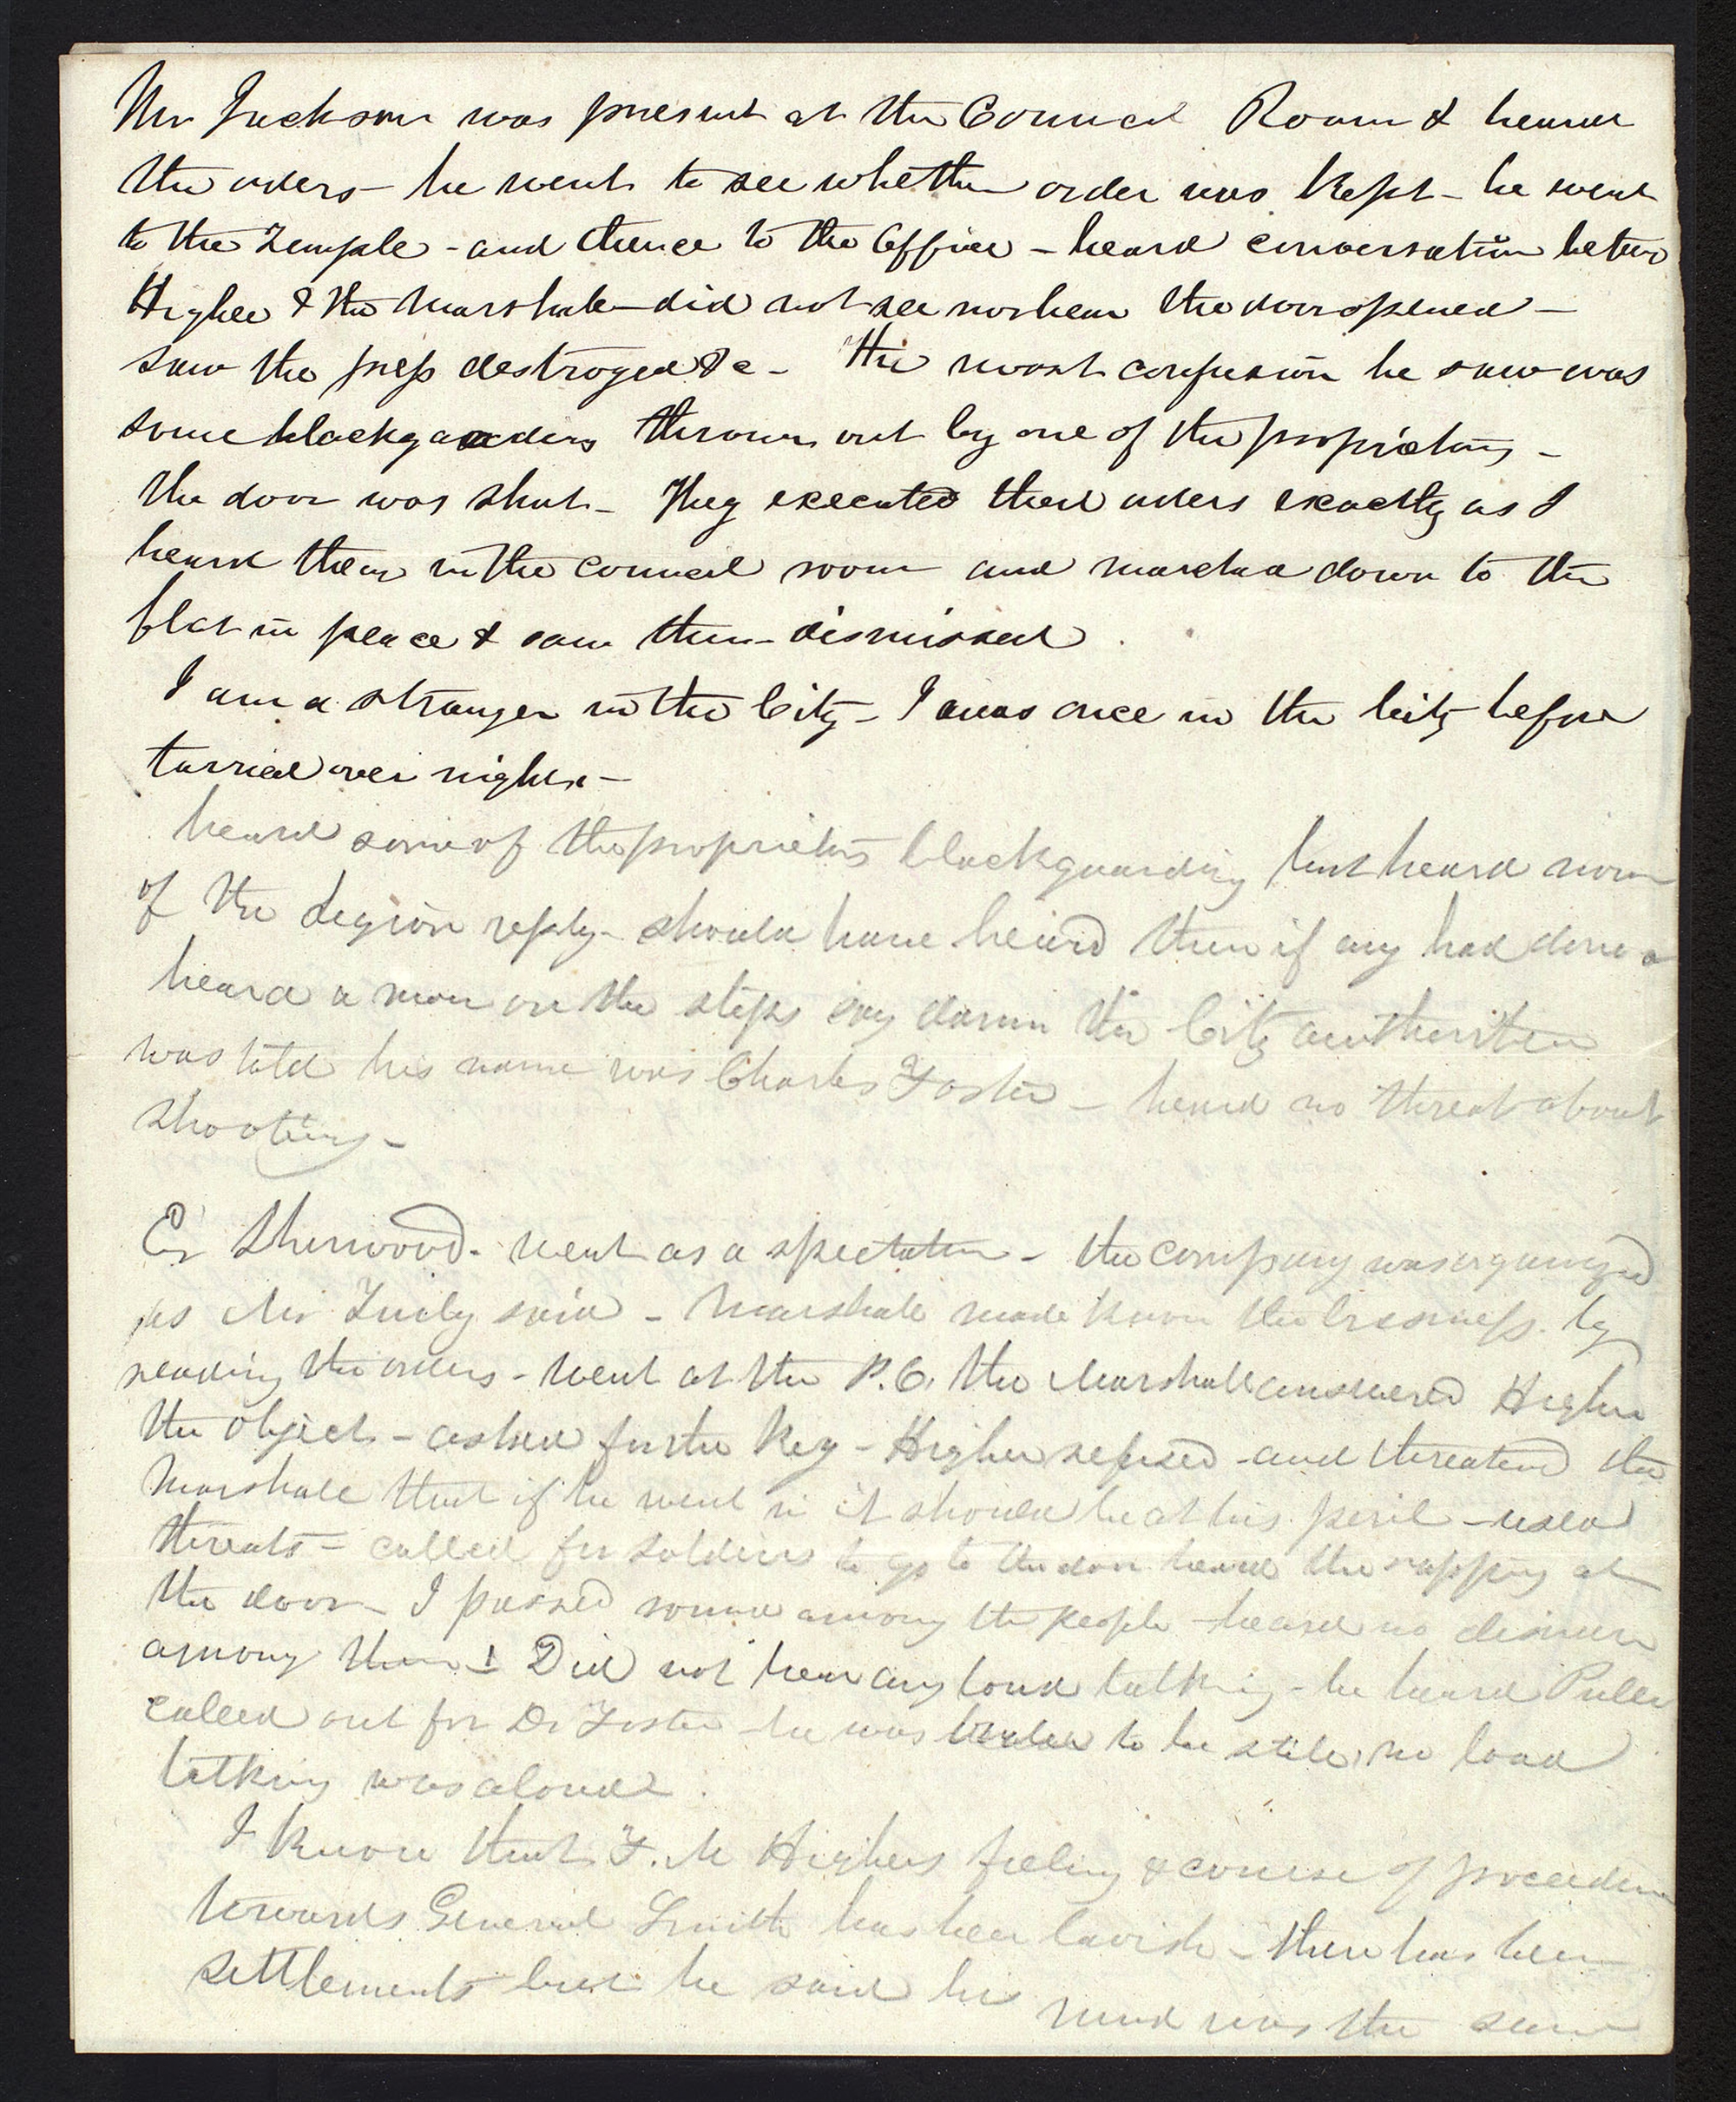 Mr Jackson was present at the Council Room & heard
the orders – he went to see whether order was kept – he went
to the Temple – and thence to the Office – heard conversation betwe
Higbee & the Marshale – did not see nor hear the door opened –
saw the press destroyed &c – the most confusion he saw was
some blackgarders thrown out by one of the proprietors –
the door was shut – They executed their orders exactly as I
heard them in the council room and marched down to the
flat in peace & saw them dismissed
I am a stranger in the City – I was once in the City before
tarried over night –
heard some of the proprietors blackguarding but heard none
of the Legion reply – should have heard them if any had done
heard a man on the steps say damn the City authorities
was told his name was Charles Foster – heard no threat about
shooting –
Er Sherwood – went as a spectator – the company was organized
as Mr said – Marshale made known the business by
reading the orders – went at the P.O. the Marshall answered Higbee
the object – asked for the key – Higbee refused and threatend the
Marshale that if he went in it should be at his peril – used
threats – called for soldiers to go to the door heard the rapping at
the door – I passed round among the people – heard no
among them – Did not hear any loud talking – he heard
called out for Dr Foster – he was to be still, no loud
talking was aloud
I know that F. M Higbees feeling & course of proceeding
towards General Smith has been lavish – there has been
settlements but he said his mind was the same